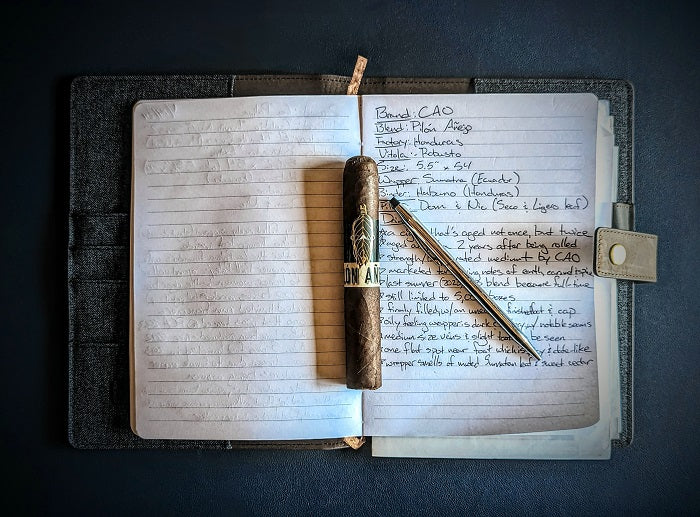 Brand: CAO
Blend: Pilón Añejo
Factory: Honduras
Vitola: Robusto
Size: 5.5" x 54
Wrapper: Sumatra (Ecuador)
Binder: Habano (Honduras)
Dom & Nic (Seco & Ligero leaf)
that's aged not once, but twice
2 years after being rolled
medium by CAO
marketed notes of earth,
last summer blend became full-time
still limited to
firmly filled w/an foot & cap
oily feeling wrapper is dark w/ notable seams
medium size veins & slight be seen
one flat spot near foot which is
wrapper smells of muted Sumatran leaf & sweet cedar
ÓN AÑ